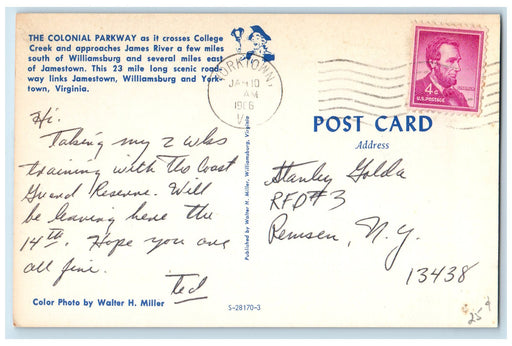 THE COLONIAL PARKWAY as it crosses College
Creek and approaches James River a few miles
south of Williamsburg and several miles east
of Jamestown. This 23 mile long scenic road-
way links Jamestown, Williamsburg and York-
town, Virginia.
YORKTOWN,
JAN 10
AM
VA
4¢
U.S. POSTAGE
Hi.
Taking my 2 wks
training with the Coast
Guard Reserve. Will
be leaving here the
14th. Hope you are
all fine.
Ted
Color Photo by Walter H. Miller
Published by Walter H. Miller, Williamsburg, Virginia
S-28170-3
POST CARD
Address
Stanley Golda
RFD #3
Remsen, N.Y.
13438
25